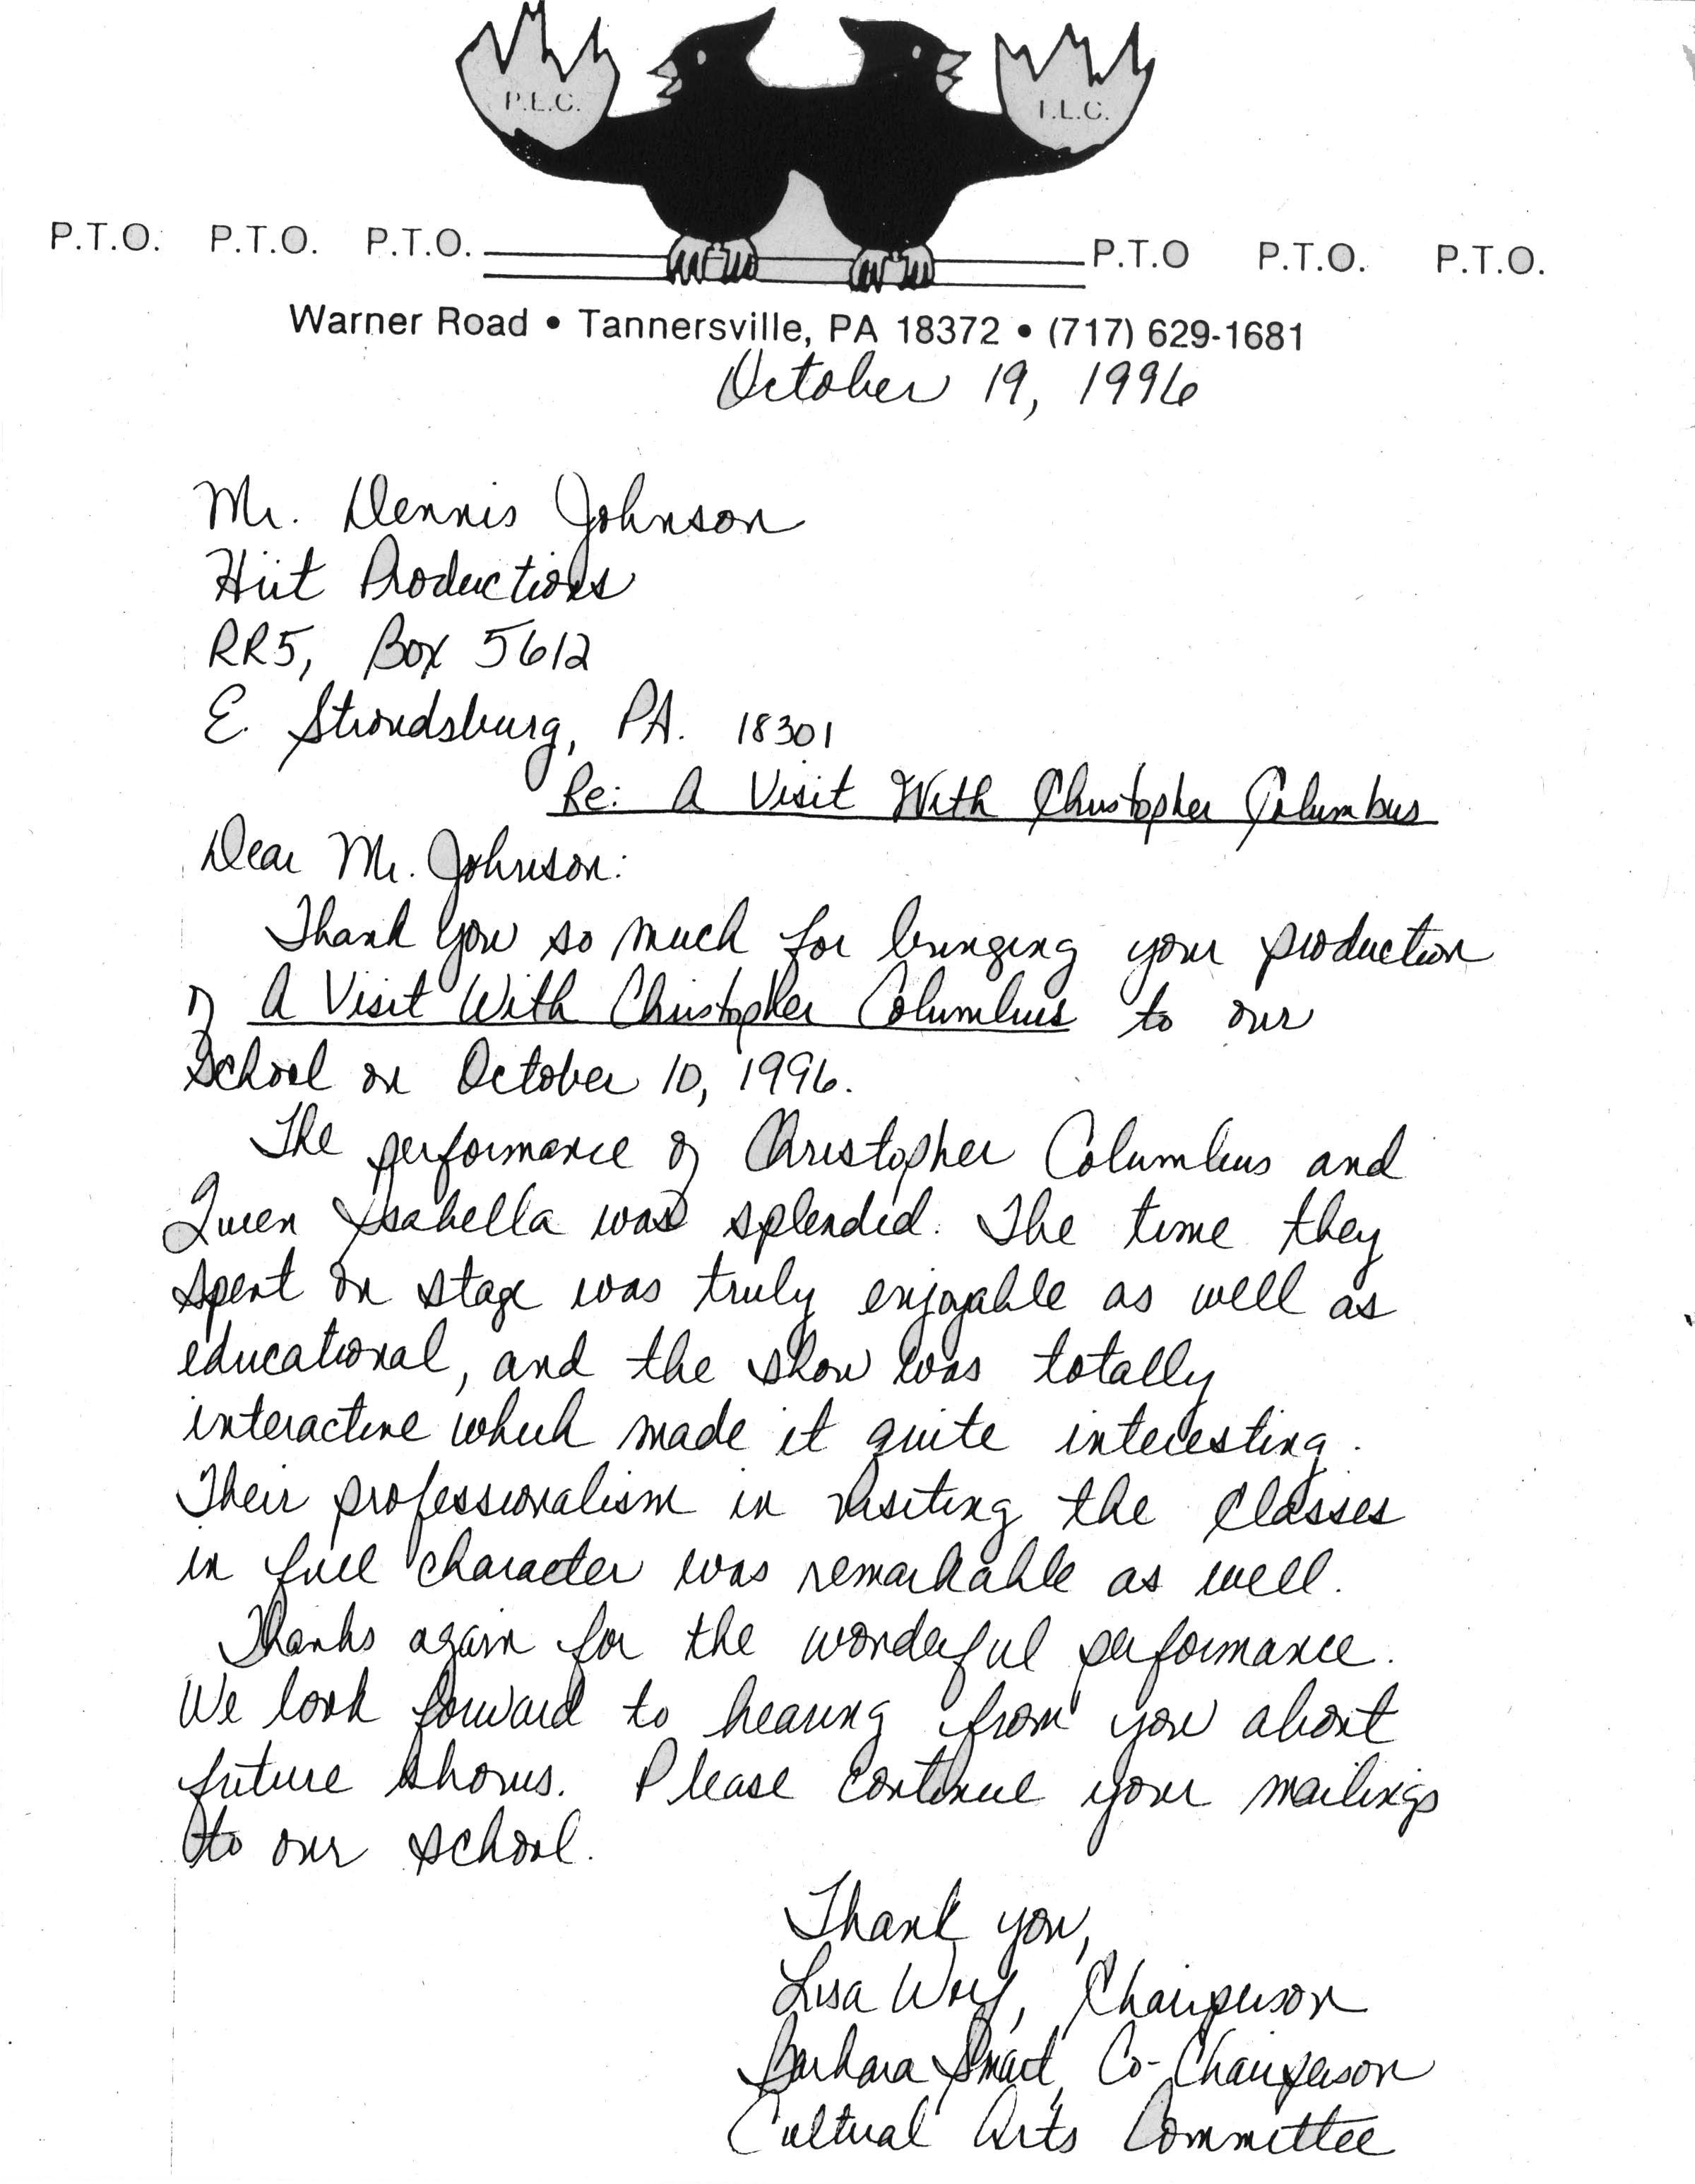 P.L.C. I.L.C.
P.T.O. P.T.O. P.T.O. P.T.O P.T.O. P.T.O.
Warner Road • Tannersville, PA 18372 • (717) 629-1681
October 19, 1996
Mr. Dennis Johnson
Productions
RR5, Box 5612
E. Stroudsburg, PA. 18301
Re: A Visit With Christopher Columbus
Dear Mr. Johnson:
Thank you so much for bringing your production
of A Visit With Christopher Columbus to our
school on October 10, 1996.
The performance of Christopher Columbus and
Queen Isabella was splendid. The time they
spent on stage was truly enjoyable as well as
educational, and the show was totally
interactive which made it quite interesting.
Their professionalism in visiting the classes
in full character was remarkable as well.
Thanks again for the wonderful performance.
We look forward to hearing from you about
future shows. Please continue your mailings
to our school.
Thank you,
Lisa Chairperson
Barbara Smart, Co-Chairperson
Cultural Arts Committee